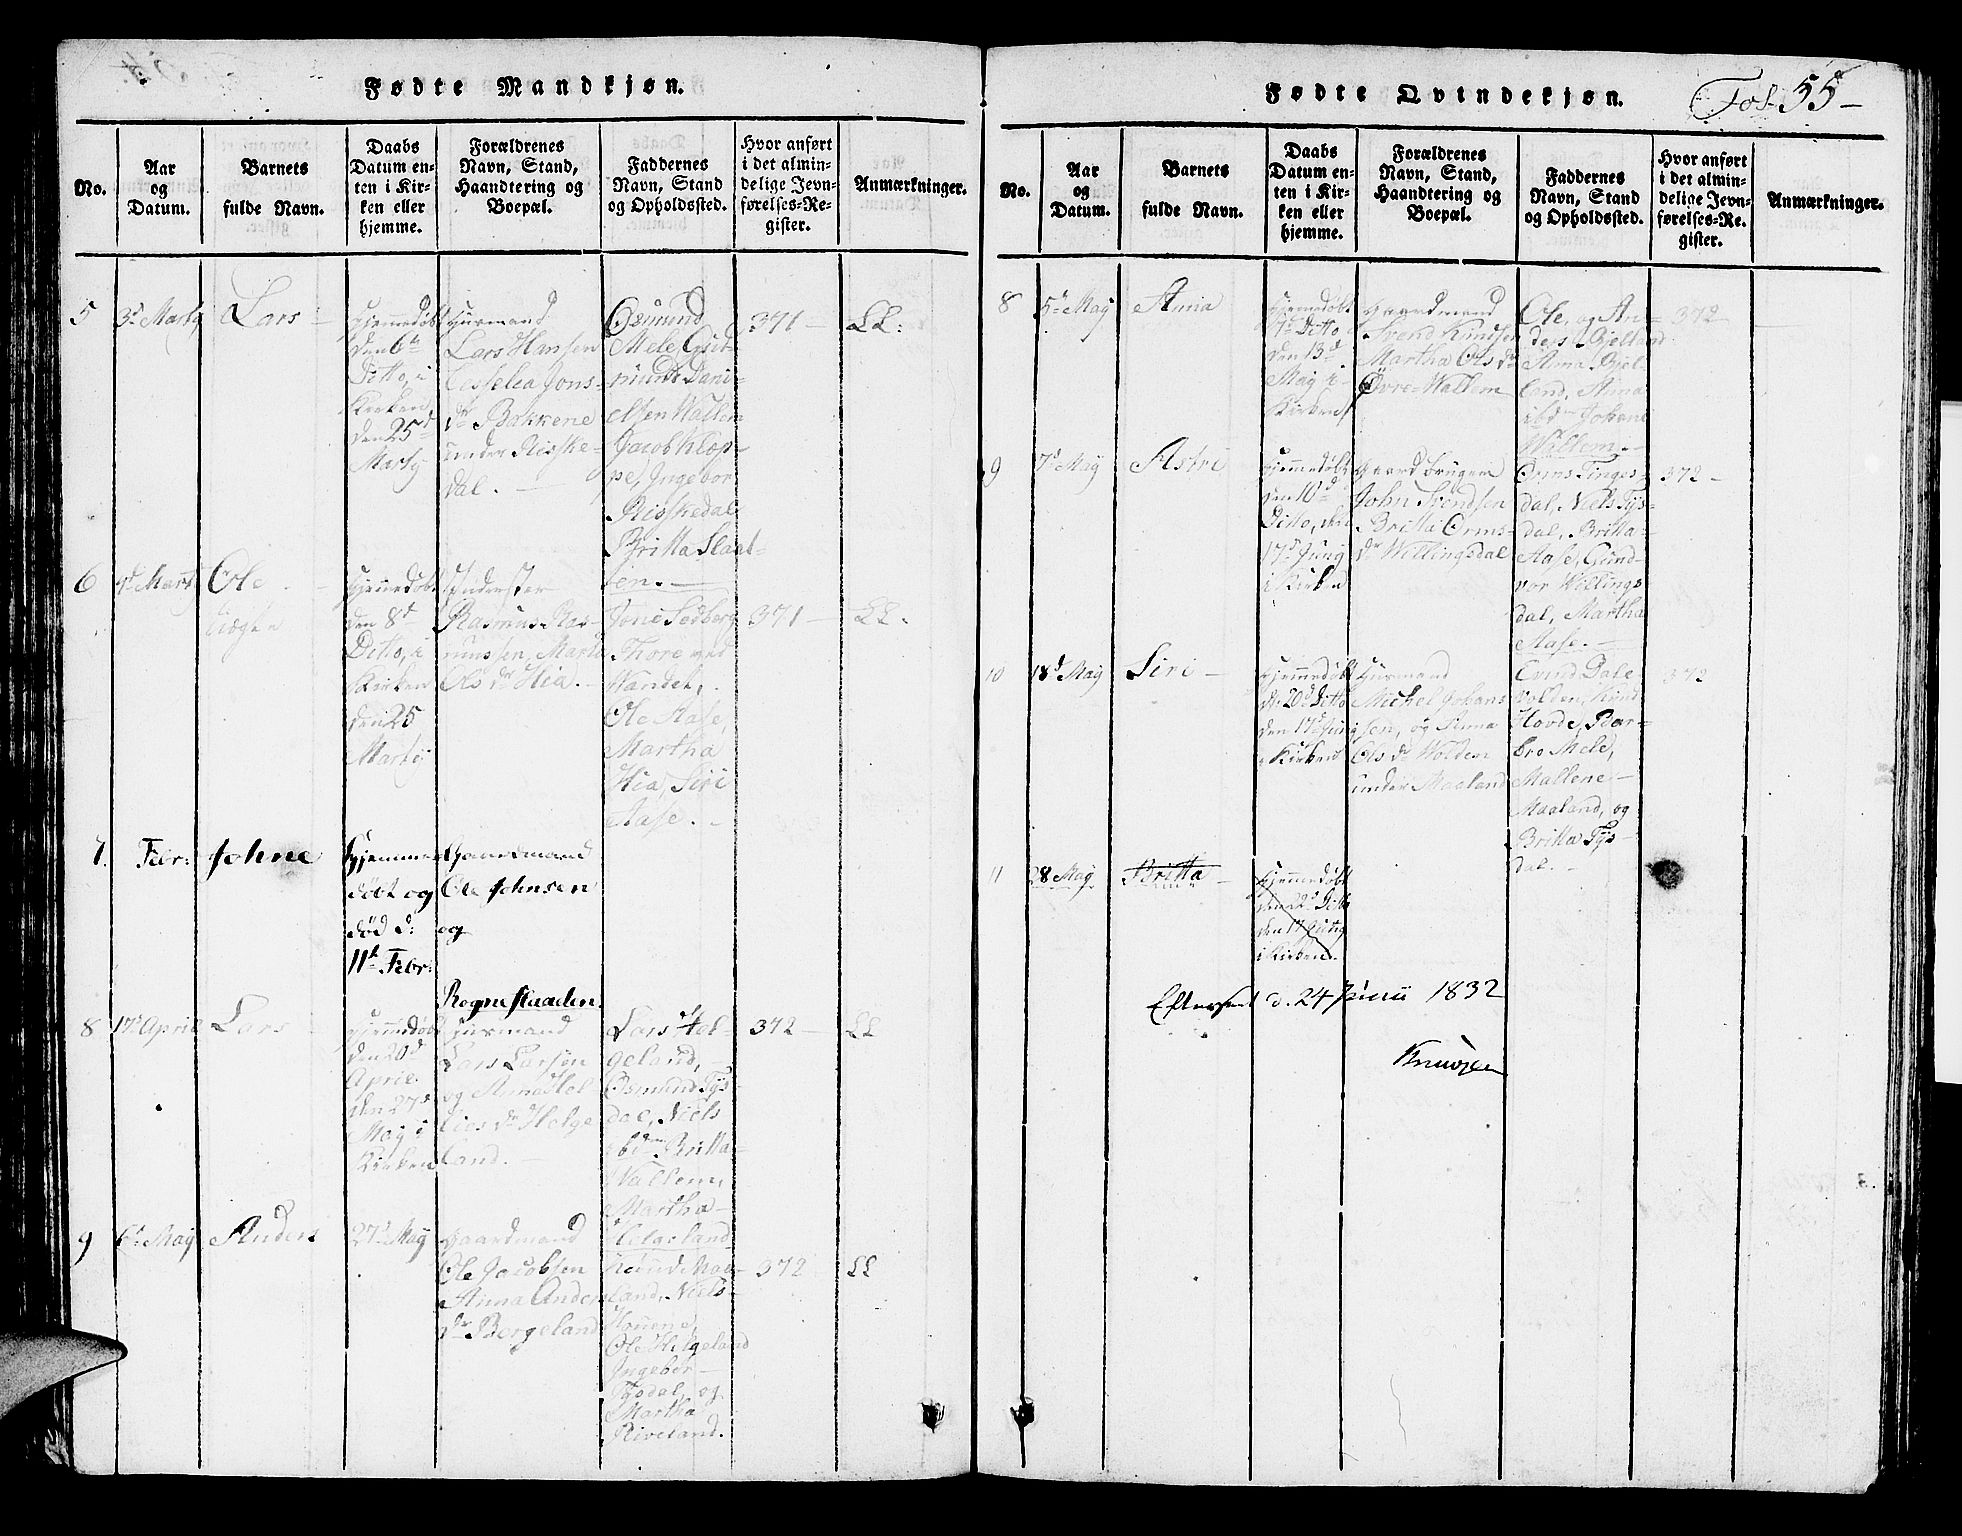 Fødte Mandkjøn.
No.
Aar
og
Datum.
Barnets
fulde Navn.
Daabs
Datum en-
ten i Kir-
ken eller
hjemme.
Forældrenes
Navn, Stand,
Haandtering og
Boepæl.
Faddernes
Navn, Stand
og Opholdssted.
Hvor anført
i det almin-
delige Jevn-
førelses-Re-
gister.
Anmærkninger.
5
3d Marty
Lars
Hjemmedøbt
den 6te
Ditto, i
Kirken
den 25d
Marty
Huusmand
Lars Hansen
Jons-
dr Bakkene
under Risske-
dal.
Osmund
Mele, Gut-
Dani-
elsen Wallem
Jacob Klop-
pe, Ingebor
Risskedal
Britta Slaat-
ten.
371
LL.
6
4d Marty
Ole
Hjemmedøbt
den 8d
Ditto, i
Kirken
den 25
Marty
Inderster
Rasmus Ras-
mussen, Marta
Ols dr Hia.
Tore
Ole Aase,
Martha
Hia, Siri
Aase.
371
LL.
7.
Febr:
Johne
Hjemme
døbt og
død d:
11te Febr:
Gaardmand
Ole Johnsen
og
Rognestaaden.
8
17d April
Lars
Hjemmedøbt
den 20d
April
den 27d
May i
Kirken
Huusmand
Lars Larsen
og Anna
dr Helge
land.
Lars Hel-
geland,
Osmund Tys
dal, Niels
ibdm Britta
Wallem,
Martha
Helgeland
372
LL
9
6d May
Anders
27d May
Gaardmand
Ole Jacobsen
Anna Anders
dr Bergeland
Knud Maa-
land, Niels
Ole Helgeland
Ingebor
Tysdal, og
Martha
Riveland.
372
LL
Fødte Qvindekjøn.
Fol. 55
No.
Aar
og
Datum.
Barnets
fulde Navn.
Daabs
Datum en-
ten i Kir-
ken eller
hjemme.
Forældrenes
Navn, Stand,
Haandtering og
Boepæl.
Faddernes
Navn, Stand
og Opholdssted.
Hvor anført
i det almin-
delige Jevn-
førelses-Re-
gister.
Anmærkninger.
8
5te May
Anna
Hjemmedøbt
7d Ditto
den 13d
May i
Kirken
Gaardmand
Svend Knudsen
Martha Ols dr
Øvre-Wallem
Ole, og An-
ders Bjelland
Anna Bjel-
land, Anna
ibdm Johane
Wallem.
372
9
7d May
Astri
Hjemmedøbt
den 10d
Ditto, den
17d Juny
i Kirken
Gaardbruger
John Svendsen
Britta Orms-
dr Willingsdal
Orms Tinges-
dal, Niels Tys-
dal, Britta
Aase, Gund-
vor Willings
dal, Martha
Aase.
372
10
18d May
Siri
Hjemmedøbt
d. 20d Ditto
den 17d Juny
i Kirken
Huusmand
Michel Johans
sen, og Anna
Ols dr Wolden
under Maaland
Evind Dale
volden, Knud
Hovde, Bar-
bro Mele,
Mallene
Maaland, og
Britta Tys-
dal.
372
11
28 May
Britta
Hjemmedøbt
den 2d Ditto
den 17 Juny
i Kirken.
Efterseet d. 24 Junii 1832